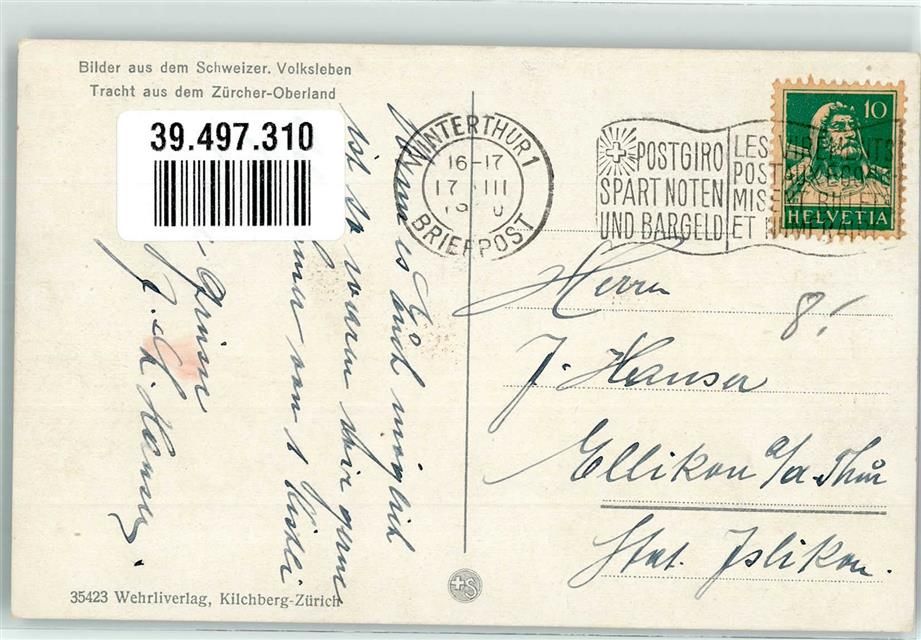 Bilder aus dem Schweizer. Volksleben
Tracht aus dem Zürcher-Oberland
39.497.310
WINTERTHUR 1
16-17
17 III
BRIEFPOST
POSTGIRO
SPART NOTEN
UND BARGELD
LES
POST
MIS
ET
10
HELVETIA
Wenn es Euch möglich
ist so wären wir gerne
von 1
Grüsse
J.
Herrn
8.
J. Hanser
Ellikon a/d. Thur
Stat. Islikon.
35423 Wehrliverlag, Kilchberg-Zürich
+S